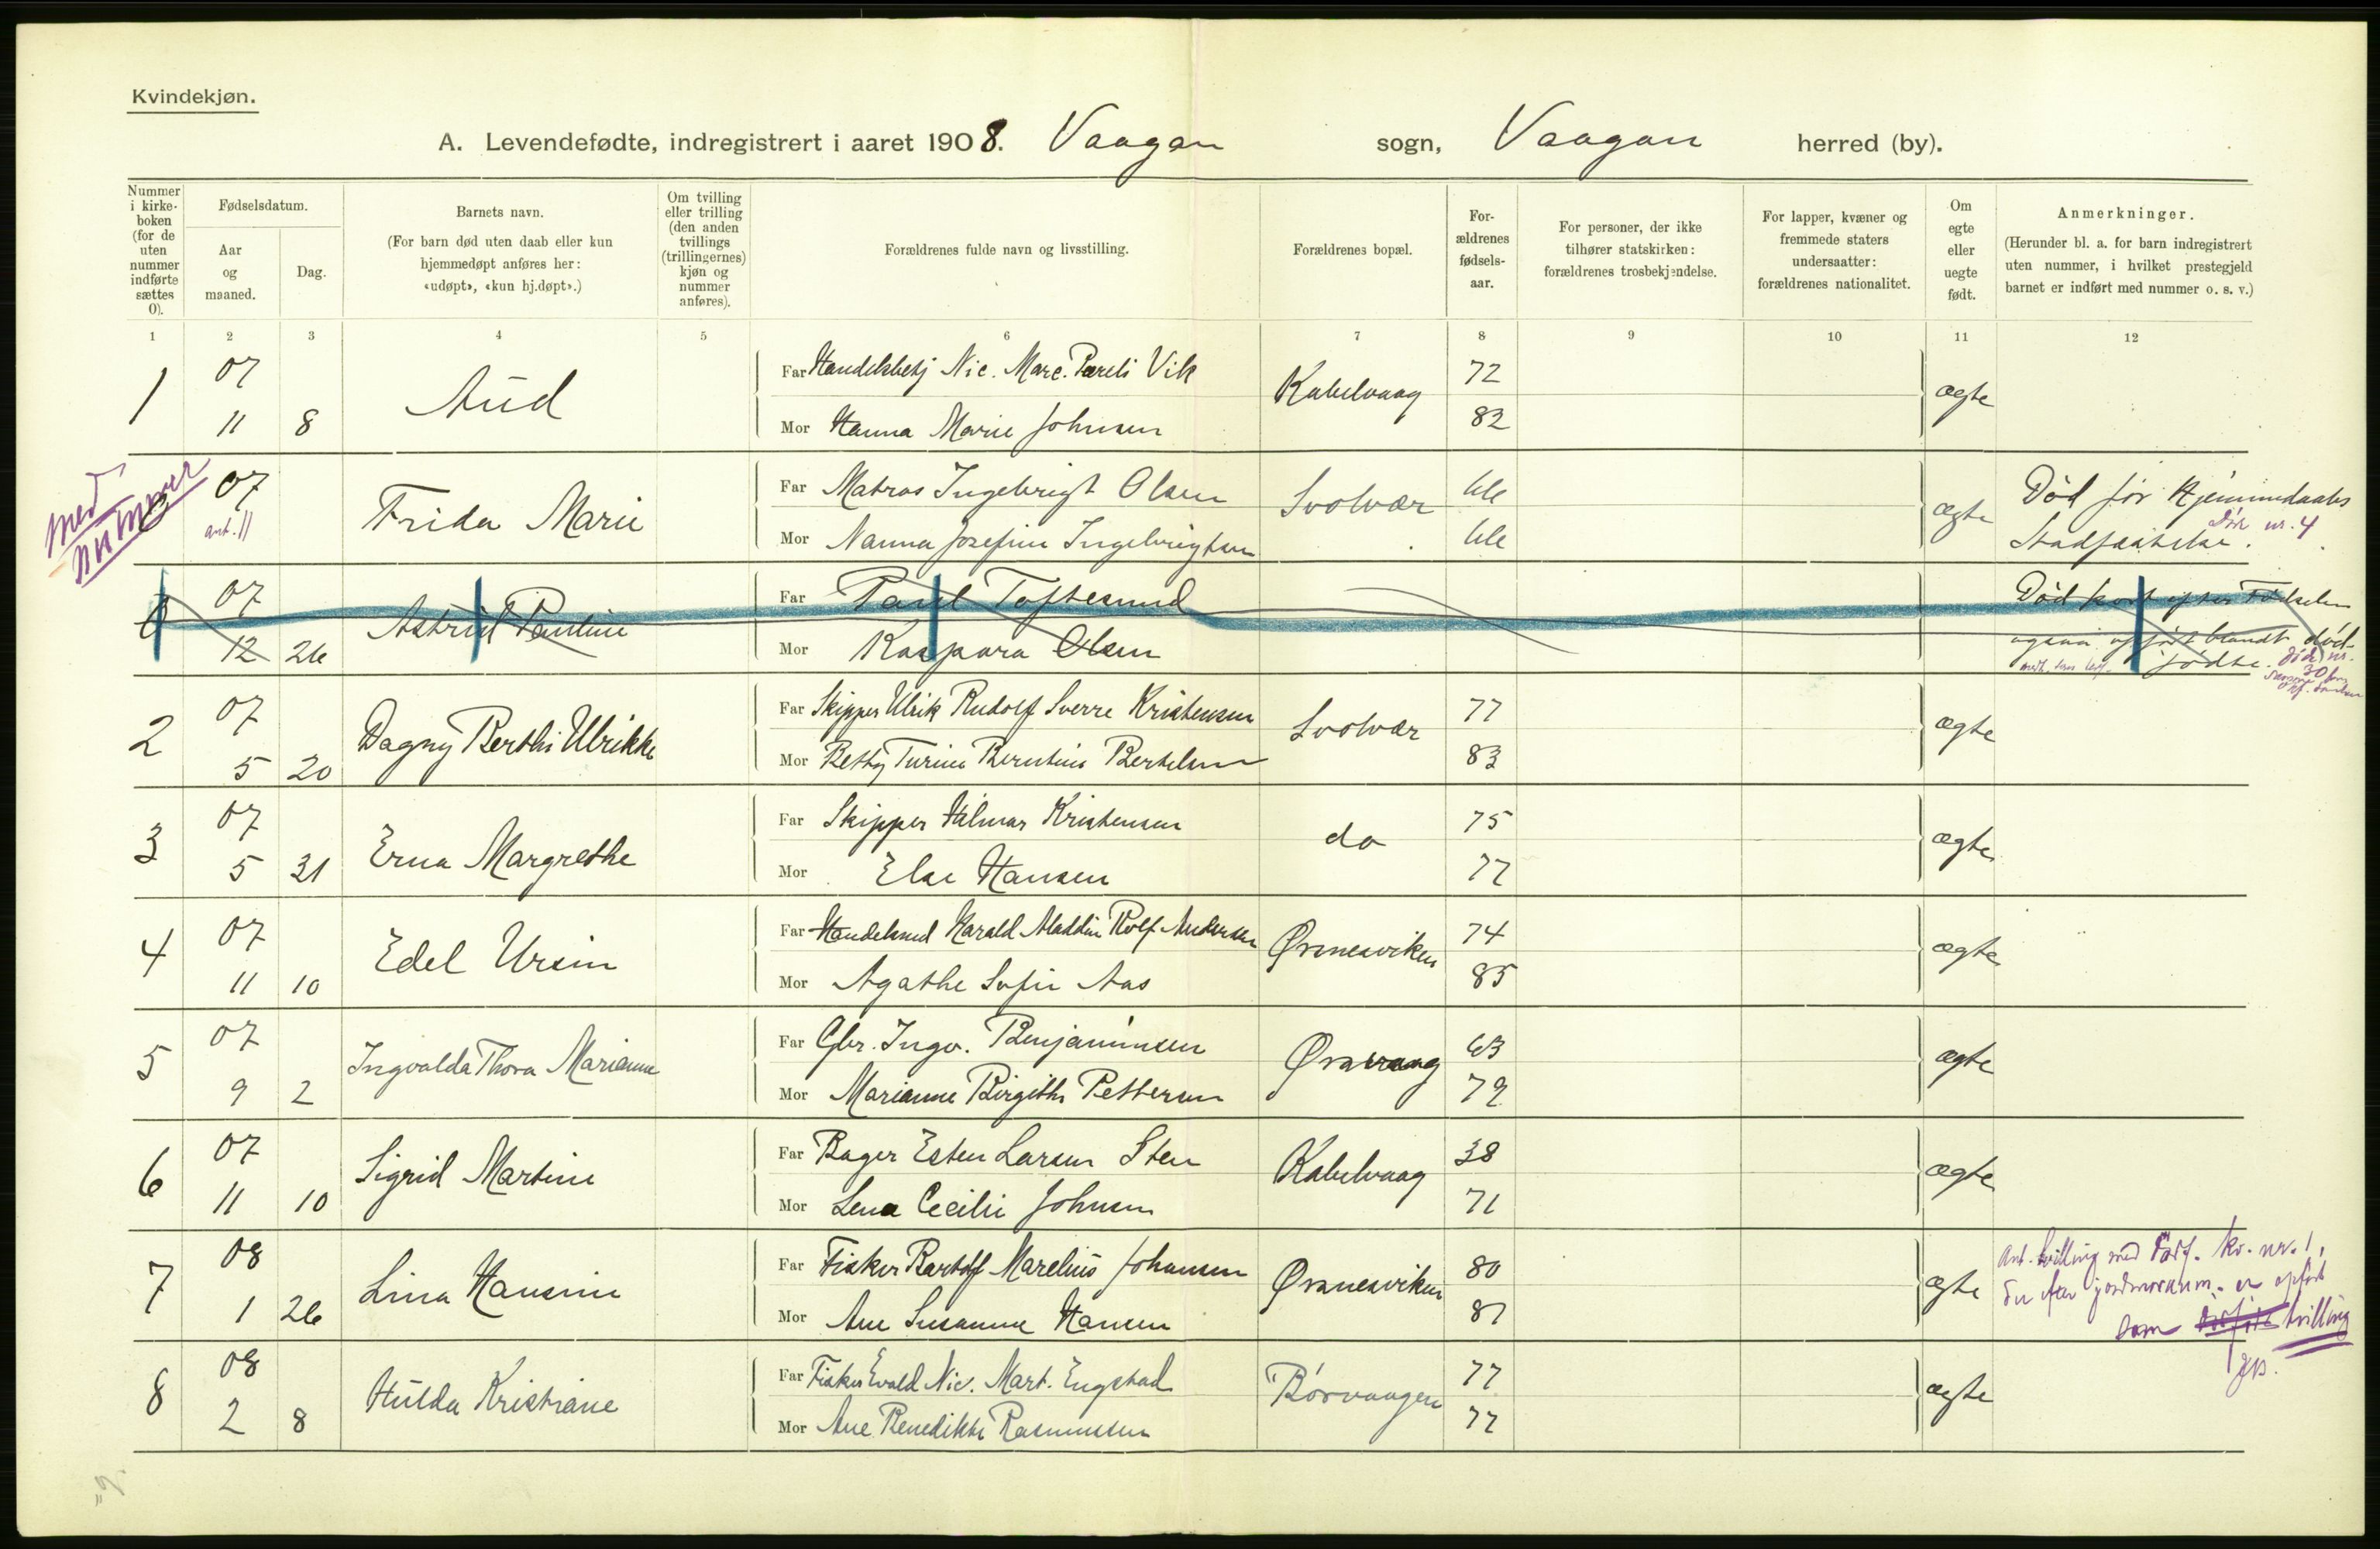 Kvindekjøn.
A. Levendefødte, indregistrert i aaret 1908. Vaagan sogn, Vaagan herred (by).
Nummer i kirke-boken (for de uten nummer indførte sættes 0).
Fødselsdatum.
Aar og maaned.
Dag.
Barnets navn.
(For barn død uten daab eller kun hjemmedøpt anføres her: «udøpt», «kun hj.døpt».)
Om tvilling eller trilling (den anden tvillings (trillingernes) kjøn og nummer anføres).
Forældrenes fulde navn og livsstilling.
Forældrenes bopæl.
For-ældrenes fødsels-aar.
For personer, der ikke tilhører statskirken: forældrenes trosbekjendelse.
For lapper, kvæner og fremmede staters undersaatter: forældrenes nationalitet.
Om egte eller uegte født.
Anmerkninger.
(Herunder bl. a. for barn indregistrert uten nummer, i hvilket prestegjeld barnet er indført med nummer o. s. v.)
1 2 3 4 5 6 7 8 9 10 11 12
1 07 Aud Far Handelsbetj Nic. Marc. Pareli Vik Kabelvaag 72 ægte
11 8 Mor Hanna Marie Johnsen 82
med nummer
07 Frida Marie Far Matros Ingebrigt Olsen Svolvær 66 ægte Død før Hjemmedaabs
ant. 11 Mor Nanna Josefine Ingebrigtsen 66 Død nr. 4
Stadfæstelse.
0 07 Astrid Pauline Far Paul Toftesund Død kort efter Fødselen
12 26 Mor Kaspara Olsen ogsaa opført blandt død-
fødte.
2 07 Dagny Berthi Ulrikke Far Skipper Ulrik Rudolf Sverre Kristensen Svolvær 77 ægte
5 20 Mor Betsy Turine Berntine Bertelsen 83
3 07 Erna Margrethe Far Skipper Hilmar Kristensen do 75 ægte
5 31 Mor Else Hansen 77
4 07 Edel Ursin Far Handelsmd Harald Aladdin Rolf Andersen Ørsnesviken 74 ægte
11 10 Mor Agathe Sofie Aas 85
5 07 Ingvalda Thora Marianne Far Gbr. Ingv. Benjaminsen Ørsvaag 63 ægte
9 2 Mor Marianne Birgithe Pettersen 72
6 07 Sigrid Martine Far Bager Esten Larsen Sten Kabelvaag 38 ægte
11 10 Mor Lena Cecilie Johnsen 71
7 08 Lina Hansine Far Fisker Bartolf Marelius Johansen Ørsnesviken 80 ægte
1 26 Mor Ane Susanne Hansen 81
Ant. tvilling med dødf. kv. nr. 1,
opført
som tvilling
8 08 Hulda Kristiane Far Fisker Evald Nic. Mart. Engstad Børvaagen 77 ægte
2 8 Mor Ane Benedikte Rasmussen 77